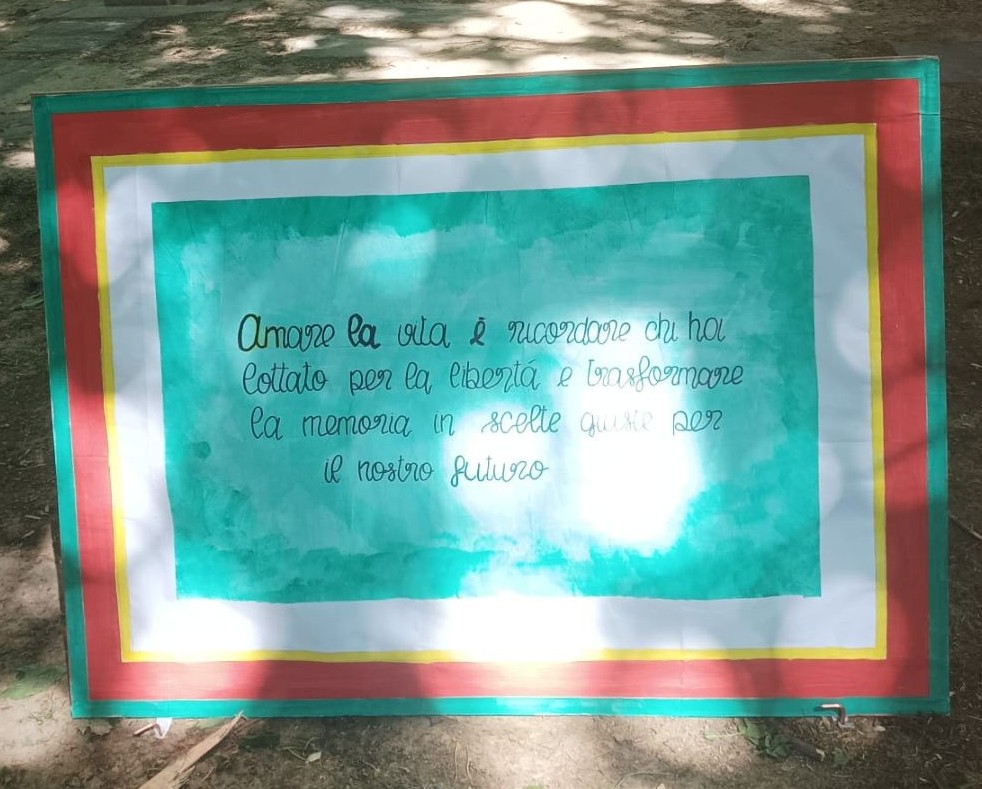 Amare la vita è ricordare chi ha
lottato per la libertá e trasformare
la memoria in scelte giuste per
il nostro futuro